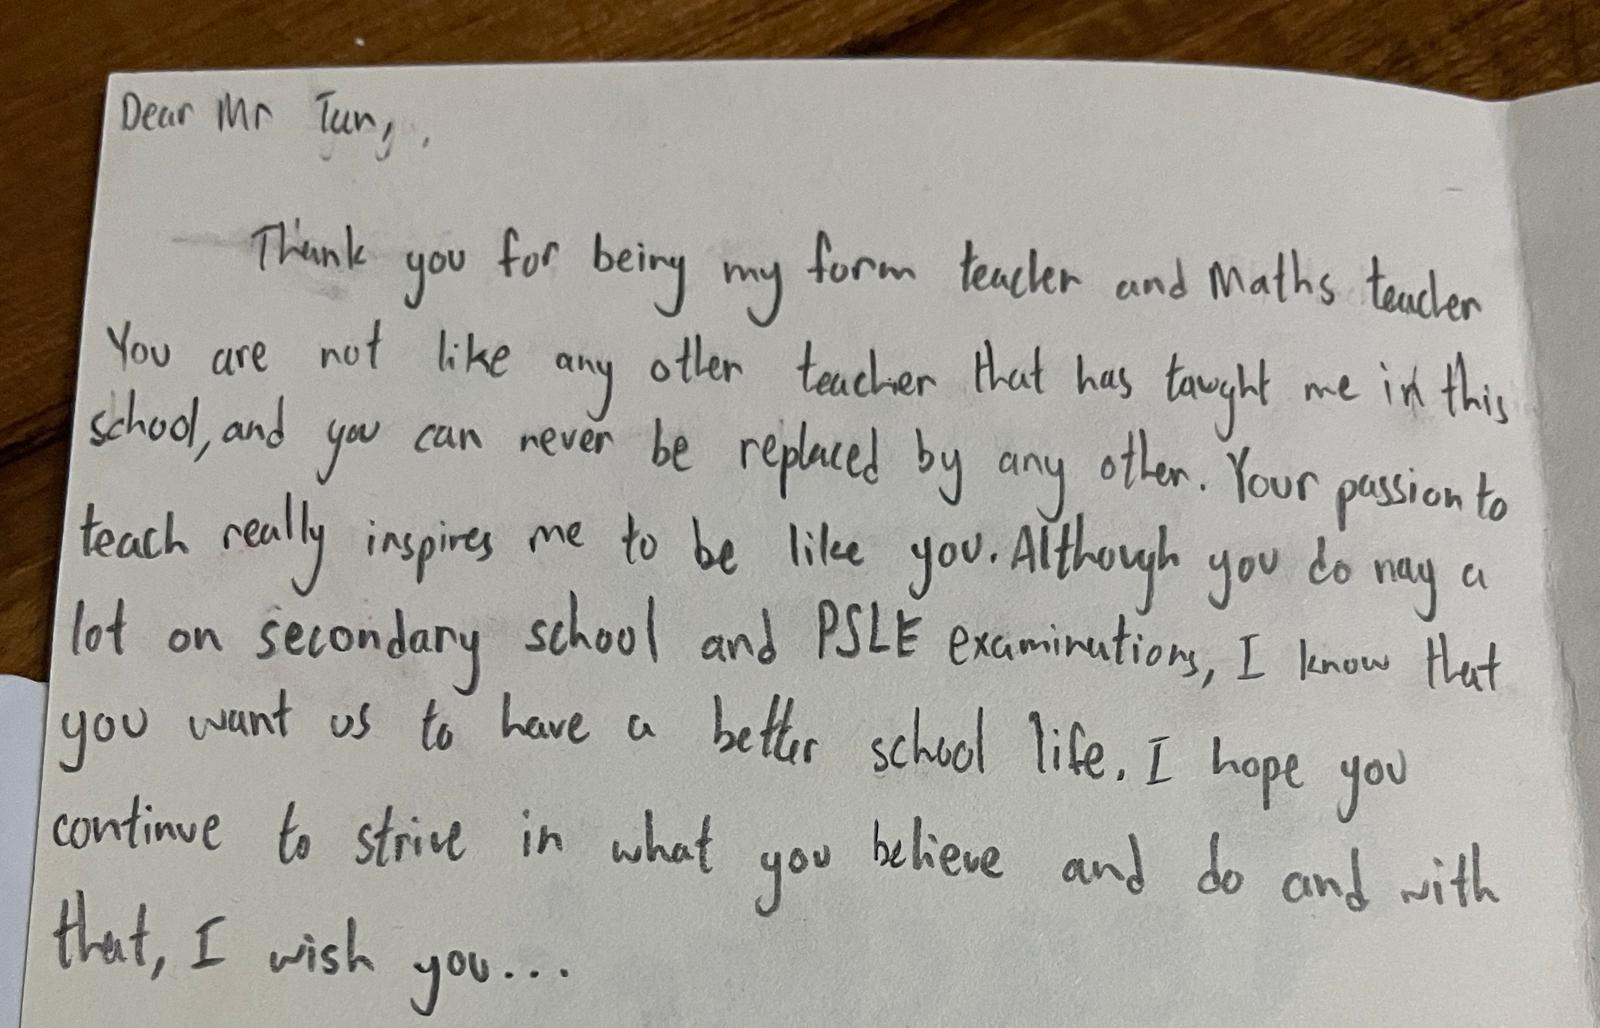 Dear Mr Tan,
Thank you for being my form teacher and Maths teacher
You are not like any other teacher that has taught me in this
school, and you can never be replaced by any other. Your passion to
teach really inspires me to be like you. Although you do nag a
lot on secondary school and PSLE examinations, I know that
you want us to have a better school life. I hope you
continue to strive in what you believe and do and with
that, I wish you...